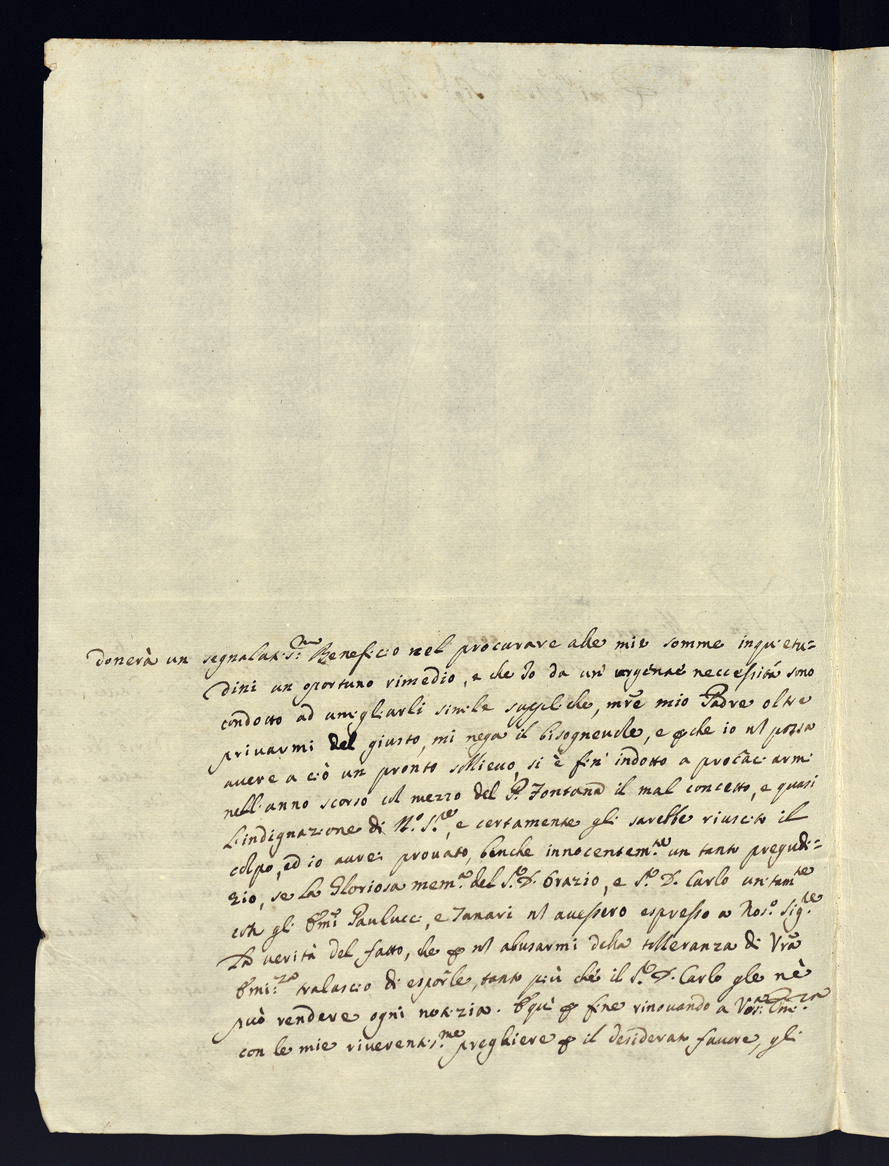 donerà un segnalatis:mo Beneficio nel procurare alle mie somme inquietu=
dini un oportuno rimedio, e che Io da un' urgente neccessità sono
condotto ad umigliarli simile suppliche, mr̃e mio Padre oltre
privarmi del giusto, mi nega il bisognevole, e ꝑche io nõ possa
avere a ciò un pronto sollievo, si è fin' indotto a procac̃iarmi
nell'anno scorso col mezzo del P. Fontana il mal concetto, e quasi
L'indignazione di N.º S.re, e certamente gli sarebbe riuscito il
colpo, ed io avrei provato, benche innocentem.te un tanto pregudi=
zio, se la Gloriosa mem.ª del S.r D. Orazio, e S.r D. Carlo unitam.te
con gli Em̃i Paulucci, e Tanari nõ avessero espresso a Nos.º Sig.re
La verità del fatto, che ꝑ nõ abusarmi della tolleranza di Vr̃a
Emi:za tralascio di esporle, tanto più che il S.r D. Carlo gle nè
può rendere ogni notizia. E quì ꝑ fine rinovando a Vos.ª Emi.za
con le mie riverentis.me preghiere ꝑ il desiderato favore, gli